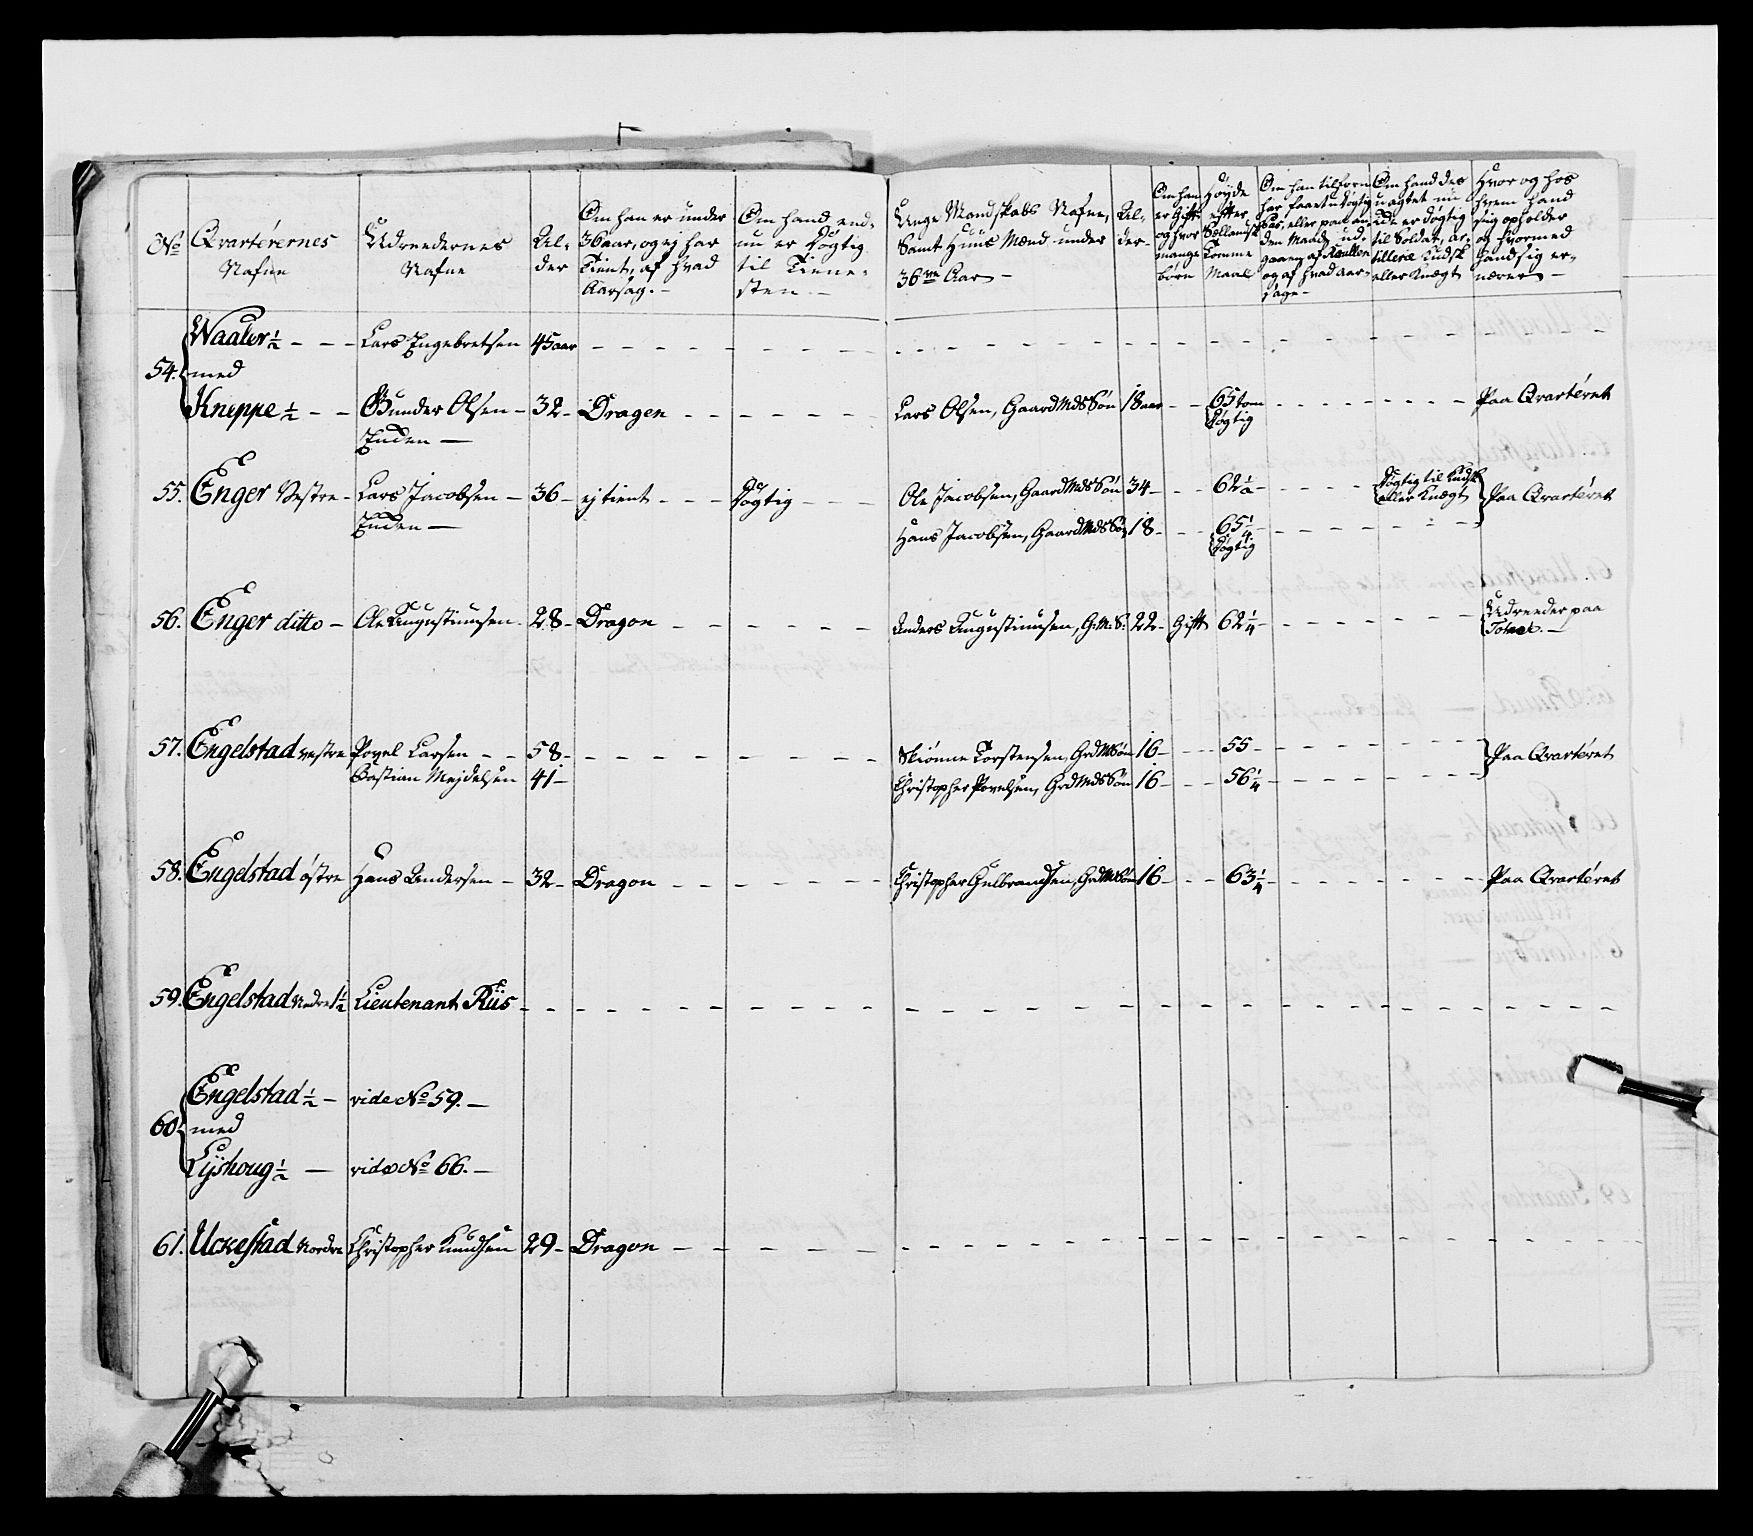 No
Qvartérernes
Nafne
Udreedernes
Nafne
Al-
der
Om han er under
36 aar, og ej har
Tient, af hvad
Aarsag.-
Om hand end-
nu er Døgtig
til Tiene-
sten.-
Unge Mandskabs Nafne,
Samt Huus Mænd under
36ve Aar -
Al-
der-
Om han
er Gift
og hvor
mange
børn
Høyde
efter
Sællandsk
Tomme
Maal
Om han tilforn
har faaet udøgtig
Pas, eller paa an-
den Maade ud-
gaaen af Rullen
og af hvad aar-
sage-
Om hand des
uagtet nu
er døgtig
til Soldat, ar-
tillerie Kudsk
eller Knægt
Hvor og hos
hvem hand
sig opholder
og hvormed
hand sig er-
nærer -
54. Waaler ½ - - - Lars Engebretsen 45 aar - - -
med
Kneppe ½ - - Gunder Olsen - 32 - Dragen - - - Lars Olsen, Gaard Mds Søn 18 aar - - 65 tom - - - Paa Qvartéret
Enden - Døgtig
55. Enger Vestre - Lars Jacobsen - 36 - ej tient - - - Døgtig - - Ole Jacobsen, Gaard Mds Søn 34 - - - 62½ - - - - Døgtig til Kudsk Paa Qvartéret
eller Knægt
Enden - Hans Jacobsen, Gaard Mds Søn 18 - - - 65¼ - - -
Døgtig
56. Enger ditto - Ole Augustinusen - 28 - Dragon - - - Anders Augustinusen, G:M:S: 22 - Gift 62¼ - - - Udreeder paa
Toten. -
57. Engelstad vestre Povel Larsen - - 58 - - - Skiönne Torstensen, Grd Mds Søn 16 - - - 55 - - - Paa Qvartéret
Bastian Mejdelsen 41 - Christopher Povelsen, Grd Mds Søn 16 - - - 56¼ - - -
58. Engelstad østre Hans Andersen - 32 - Dragon - - - Christopher Gulbrandsen, Grd M Søn 16 - - - 63¼ - - - Paa Qvartéret
59. Engelstad Nedre 1½ Lieutenant Riis - - -
60. Engelstad ½ - vide No 59. -
med
Lyshoug ½ - vide No 66. -
61. Uckestad Nordre Christopher Knudsen 29 - Dragon - - -